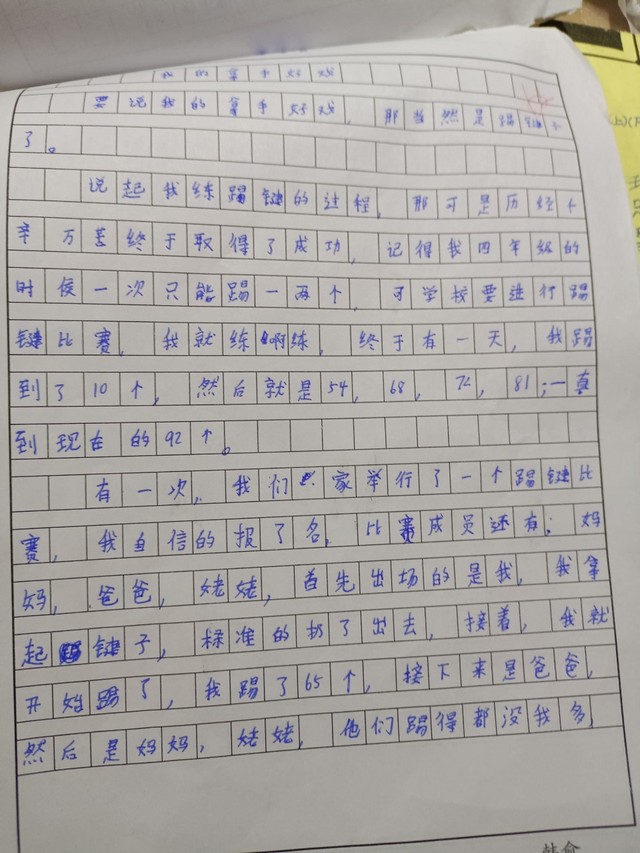 我的拿手好戏
要说我的拿手好戏，那当然是踢键子
了。
说起我练踢键的过程，那可是历经千
辛万苦终于取得了成功，记得我四年级的
时侯一次只能踢一两个，可学校要进行踢
键比赛，我就练啊练，终于有一天，我踢
到了10个，然后就是54，68，72，81；一真
到现在的92个。
有一次，我们家举行了一个踢键比
赛，我自信的报了名，比赛成员还有：妈
妈，爸爸，姥姥，首先出场的是我，我拿
起键子，标准的扔了出去，接着，我就
开始踢了，我踢了65个，接下来是爸爸，
然后是妈妈，姥姥，他们踢得都没我多，
韩俞